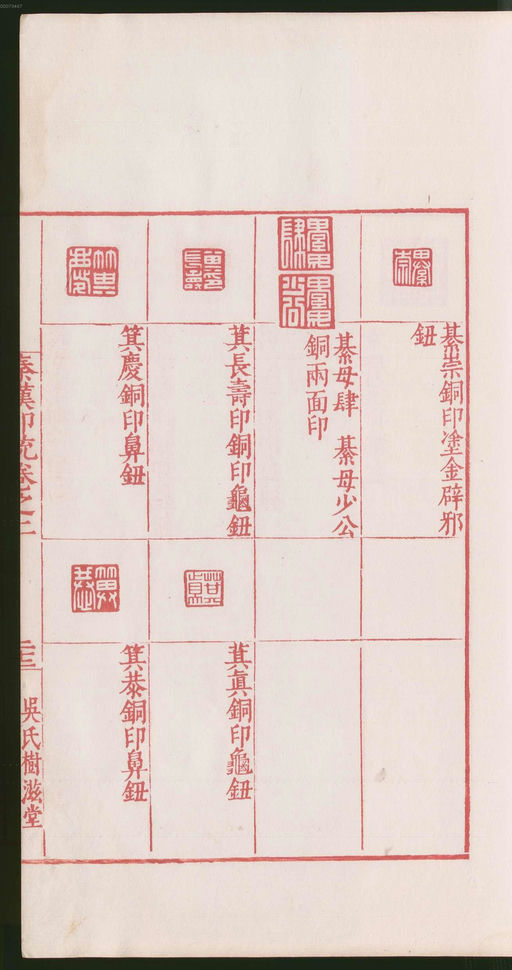 綦崇銅印塗金辟邪
鈕
綦母肆 綦母少公
銅兩面印
箕長壽印銅印龜鈕
箕慶銅印鼻鈕
箕眞銅印龜鈕
箕恭銅印鼻鈕
秦漢印統卷之三
二三
吳氏樹滋堂
00073447